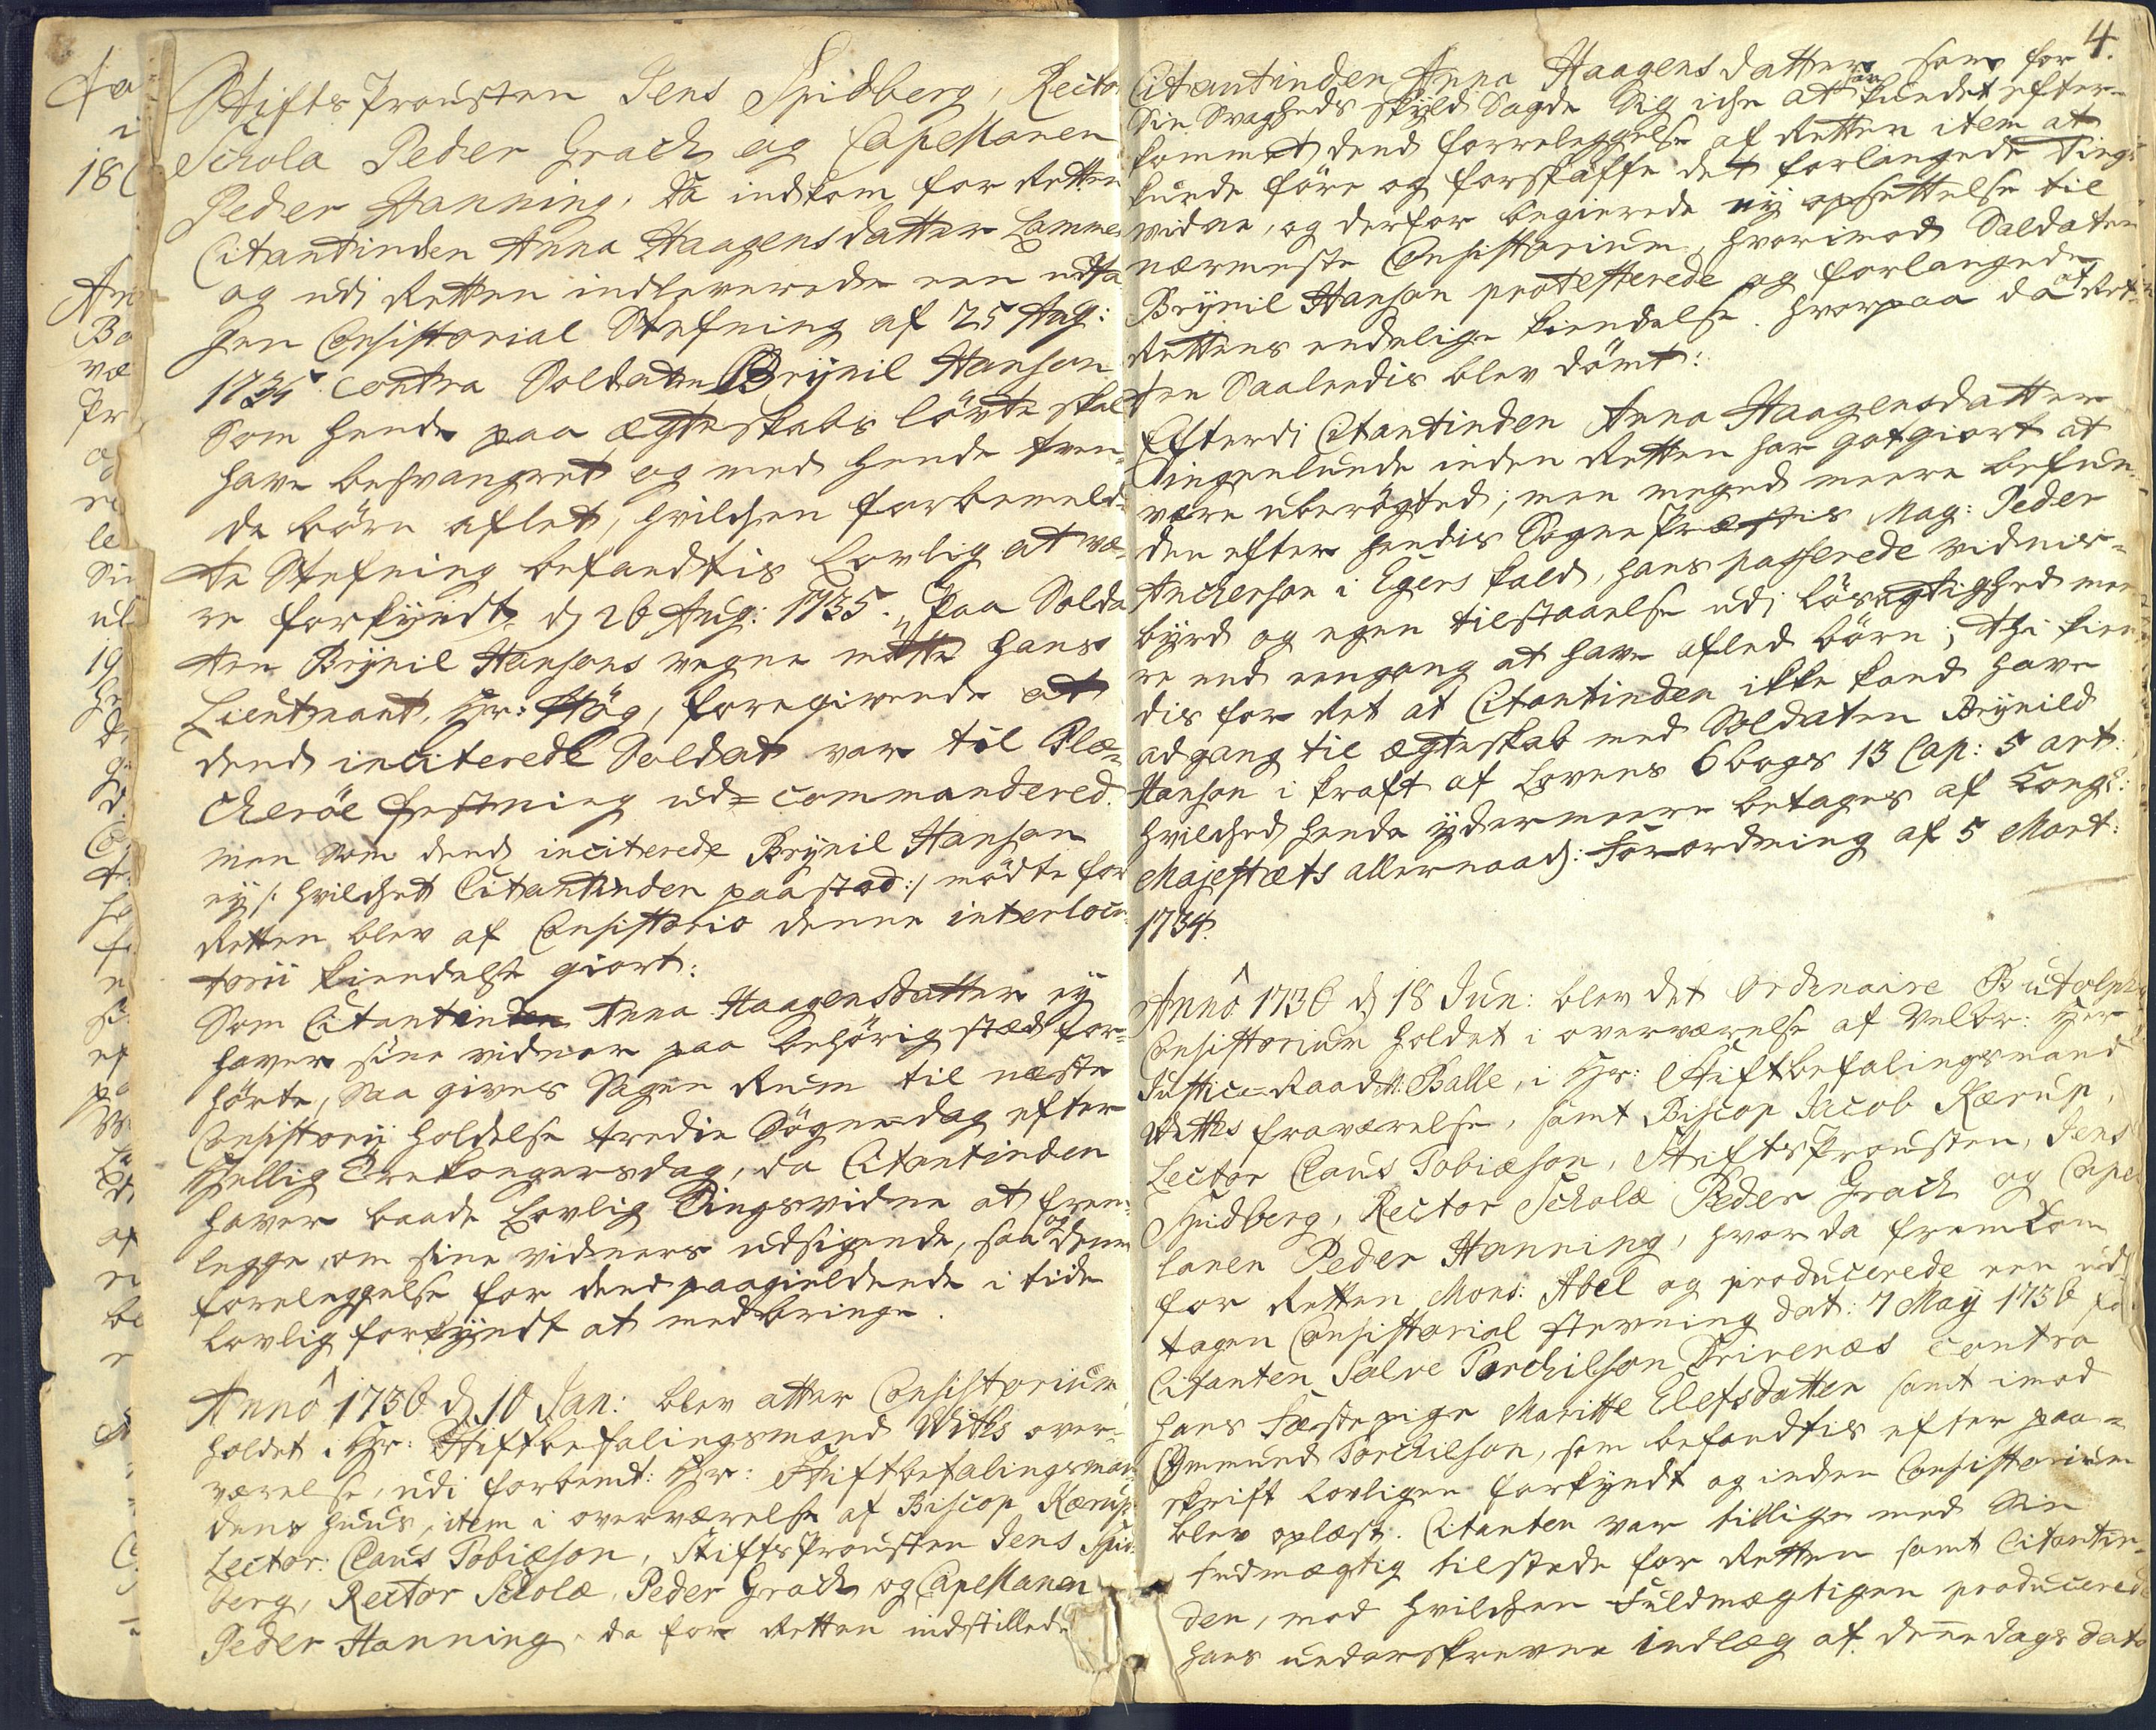 Stifts Prousten Jens Spidberg, Recto
Schola Peder Grach og Capellanen
Peder Hanning, Da indkom for Retten
Citantinden Anna Haagensdatter Lamme
og udi Retten indleverede een udta
gen Consistorial Stefning af 25 Aug:
1735 contra Soldaten Brynil Hanson
Som hende paa ægteskabs løvte skal
have besvangret og med hende tven¬
de børn aflet, hvilchen forbemeld¬
te Stefning befandtis Lovlig at væ¬
re forkyndt d 26 Aug: 1735. Paa Solda
ten Brynil Hansons vegne mötte hans
Lieutnant, Hr: Høg, foregivende at
dend inciterede Soldat var til Ble¬
cheröe festning ud=commandered.
men som dend inciterede Brynil Hanson
ey /: hvilchet Citantinden paastod:/ mödte for
Retten blev af Consistorio denne interlocu¬
torii kiendelse giort:
Som Citantinden Anna Haagensdatter ey
haver sine vidner paa behörig stæd for¬
hörte, Saa gives Sagen Rum til næste
Consistorij holdelse tredie Søgnedag efter
Hellig Trekongersdag, da Citantinden
haver baade Lovlig Tingsvidne at frem¬
legge, om sine vidners udsigende, saa og denne
foreleggelse for dend paagieldende i tide
Lovlig forkyndt at medbringe.
Annô 1736 d 10 Jan: blev atter Consistorium
holdet i Hr: Stiftbefalingsmand Withs over¬
værelse, udi forbemt: Hr: Stiftbefalingsman
dens huus, item i overværelse af Biscop Kærup,
Lector: Claus Tobiæson, Stifts Prousten Jens Spid
berg, Rector Scholæ, Peder Grach og Capellanen
Peder Hanning, da for Retten indstillede
4.
Citantinden Anna Haagensdatter, som for
Sin Svagheds skyld Sagde Sig iche at have kundet efter¬
kommet dend foreleggelse af Retten item at
kunde före og forskaffe det forlangede Tings
vidne, og derfor begierede ny opsettelse til
nærmeste Consistorium, hvorimod Soldaten
Brynil Hanson protesterede og forlangede
Rettens endelige kiendelse. hvorpaa da af Ret¬
ten Saaleedis blev dömt:
Efterdi Citantinden Anna Haagensdatter
Ingenlunde inden Retten har godgiort at
være uberögted; men meget meere befun¬
den efter hendis Sogne Præstis Mag: Peder
Anchersen i Egers kald, hans passerede vidnis¬
byrd og egen tilstaaelse udj Lösagtighed mee
re end eengang at have afled børn; thi kien
dis for Ret at Citantinden ikke kand have
adgang til ægteskab med Soldaten Brynild
Hanson i kraft af Lovens 6 bogs 13 Cap: 5 art:
hvilched hende ydermeere betages af Kongl:
Majestæts allernaad: Forordning af 5 Mart:
1734.
Annô 1736 d 18 Jun: blev det ordinaire Butolphi
Consistorium holdet i overværelse af Velbr: Her
Justice=Raad N: Balle, i Hr: Stiftbefalingsmand
Withs fraværelse, samt Biscop Jacob Kærup,
Lector Claus Tobiæson, StiftsProusten, Jens
Spidberg, Rector Scholæ Peder Grach og Capel
lanen Peder Hanning, hvor da fremkom
for Retten Mons: Abel og producerede een ud¬
tagen Consistorial stevning dat: 7 May 1736 for
Citanten Salve Torchilson Trivenæs contra
hans Fæstepige Maritte Elefsdatter samt imod
Gummund Torchilson, som befandtis efter paa¬
skrift Lovligen forkyndt og inden Consistorium
blev oplæst. Citanten var tillige med Sin
Fuldmægtig tilstede for Retten samt Citantin¬
den, mod hvilchen Fuldmægtigen producerede
hans underskrevne indlæg af denne dags dato